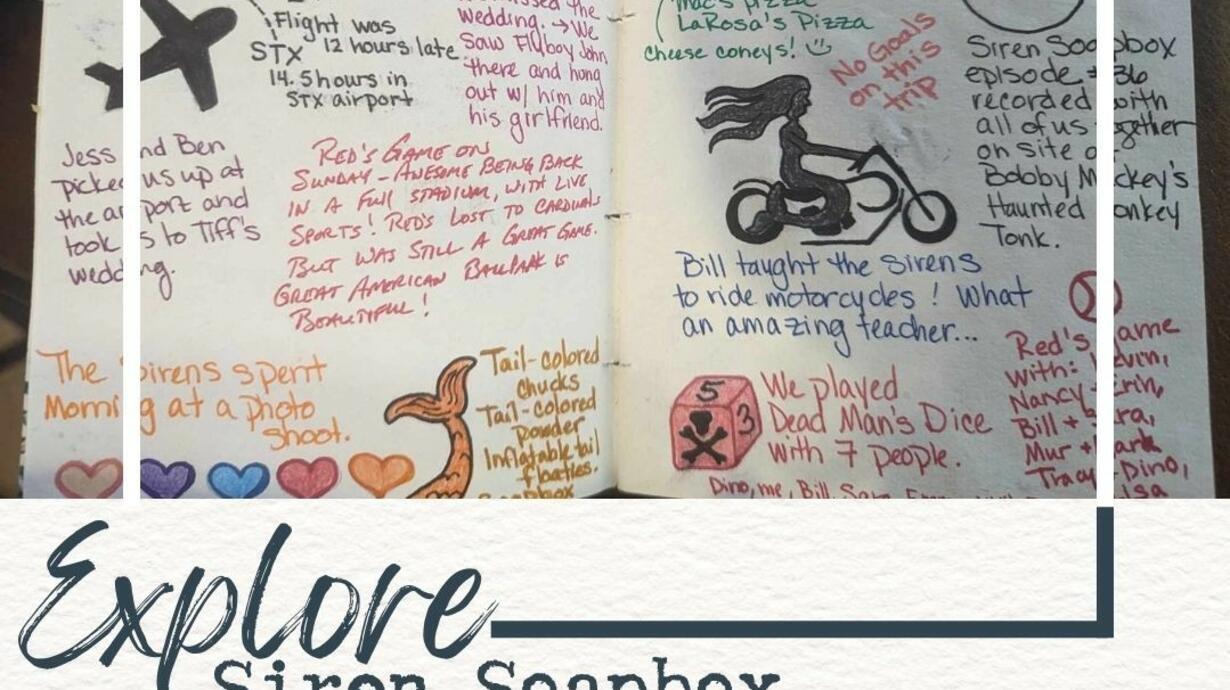 Flight was
STX 12 hours late
14.5 hours in
STX airport
the
wedding. → We
saw Flyboy John
there and hung
out w/ him and
his girlfriend.
Jess and Ben
picked us up at
the airport and
took us to Tiff's
wedding.
RED'S GAME ON
SUNDAY - AWESOME BEING BACK
IN A FULL STADIUM, WITH LIVE
SPORTS! RED'S LOST TO CARDINALS
BUT WAS STILL A GREAT GAME.
GREAT AMERICAN BALLPARK IS
BEAUTIFUL!
The Sirens spent
Morning at a photo
shoot.
Tail-colored
chucks
Tail-colored
powder
Inflatable tail
floaties.
Soapbox
Mac's pizza
LaRosa's Pizza
cheese coneys!
No Goals
on this
trip
Siren Soapbox
episode #36
recorded with
all of us together
on site at
Bobby Mackey's
Haunted Honkey
Tonk.
Bill taught the sirens
to ride motorcycles! What
an amazing teacher...
5
3
We played
Dead Man's Dice
with 7 people.
Dino, me, Bill, Sara,
Red's Game
with: Kevin,
Nancy + Erin,
Bill + Sara,
Mur + Mark
Tracy + Dino,
Explore
Siren Soapbox